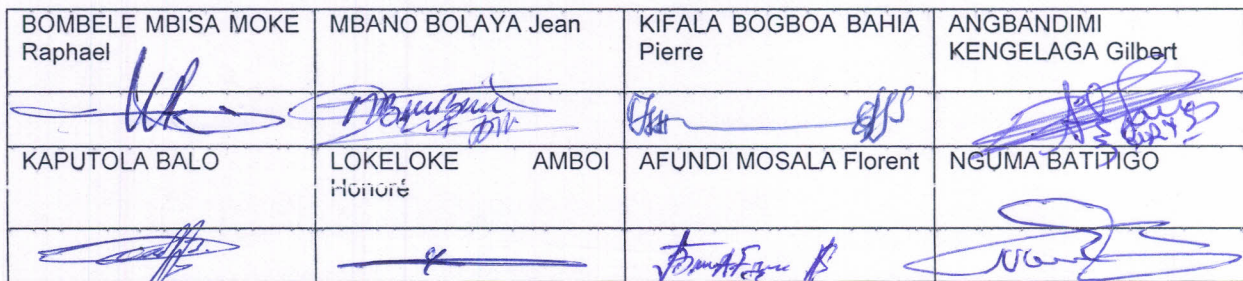 BOMBELE MBISA MOKE
Raphael
MBANO BOLAYA Jean
KIFALA BOGBOA BAHIA
Pierre
ANGBANDIMI
KENGELAGA Gilbert
KAPUTOLA BALO
LOKELOKE AMBOI
Honoré
AFUNDI MOSALA Florent
NGUMA BATITIGO